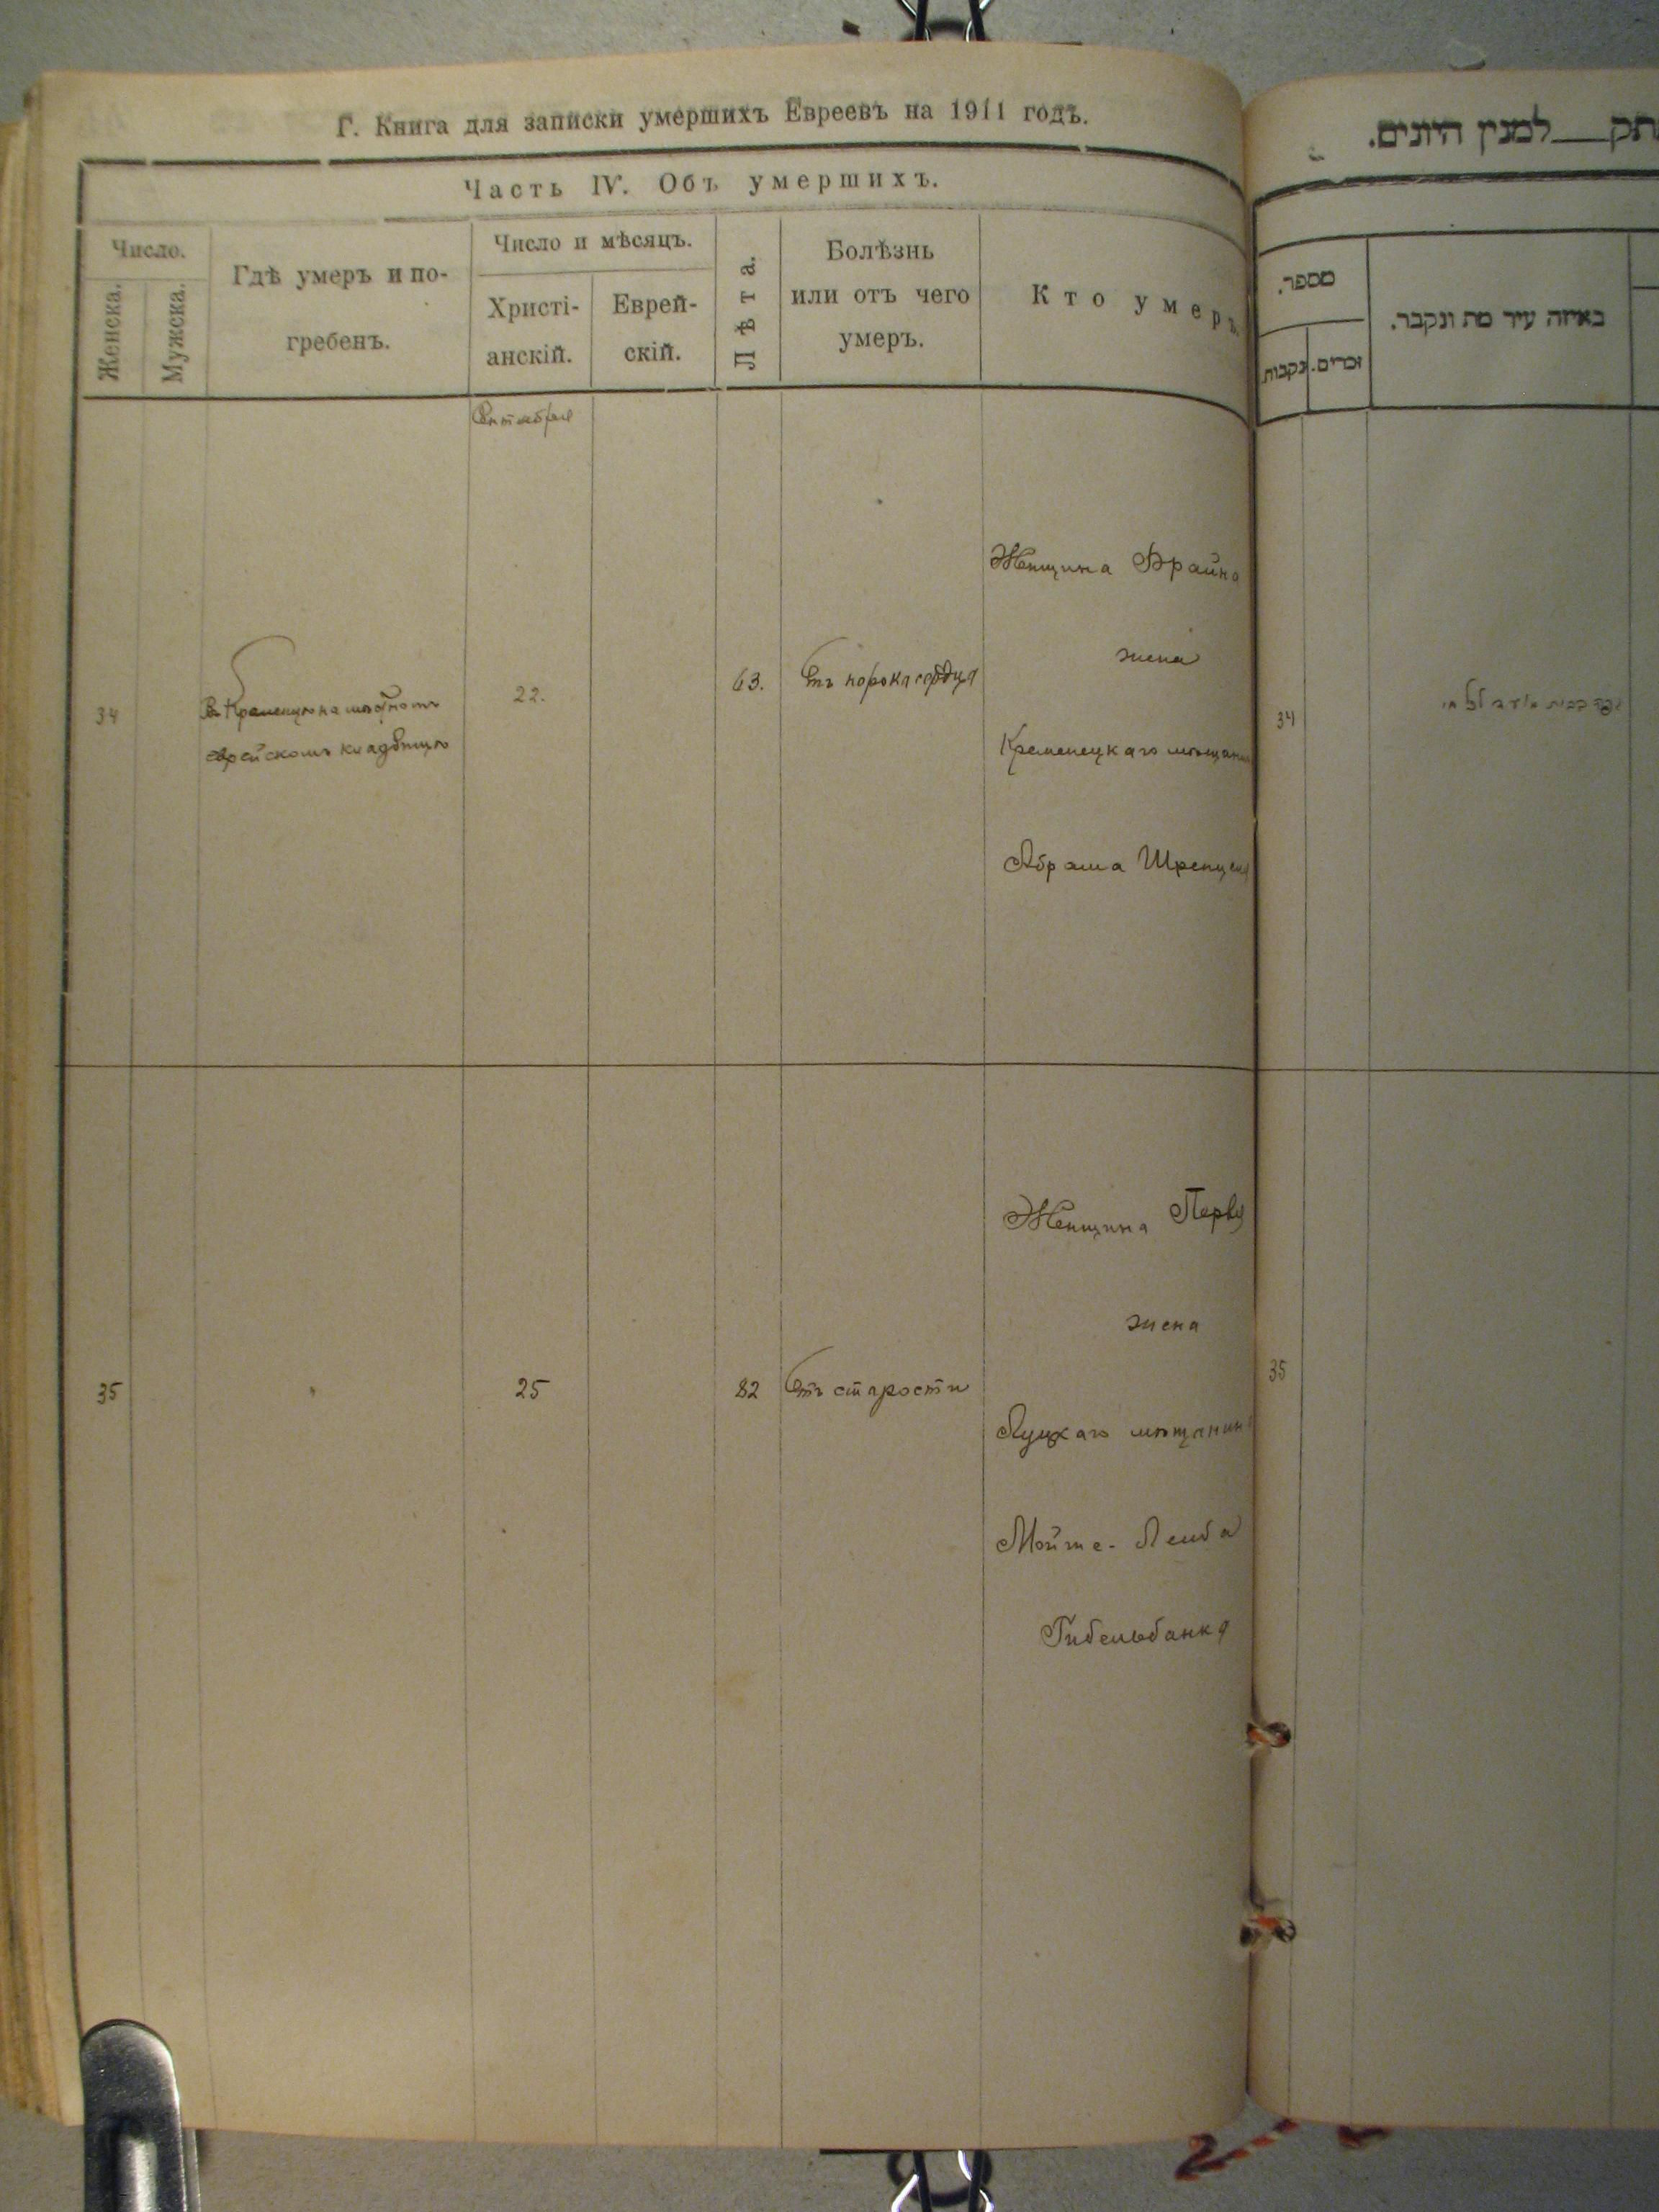 Г. Книга для записки умершихъ Евреевъ на 1911 годъ.
Часть IV. Объ умершихъ.
Число.
Женска.
Мужска.
Гдѣ умеръ и по-
гребенъ.
Число и мѣсяцъ.
Христі-
анскій.
Еврей-
скій.
Лѣта.
Болѣзнь
или отъ чего
умеръ.
Кто умеръ.
Сентября
34
Въ Кременцѣ на мѣстномъ
еврейскомъ кладбищѣ
22.
63.
Отъ порока сердца
Женщина Брайна
жена
Кременецкаго мѣщанина
Абрама
35
"
25
82
Отъ старости
Женщина Перля
жена
Луцкаго мѣщанина
Мойше-Лейба
Гибельбанка
תק__למנין היונים.
מספר.
נקבות.
זכרים.
באיזה עיר מת ונקבר.
34
35